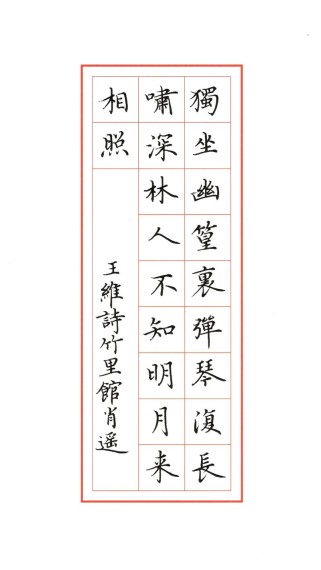 獨坐幽篁裏彈琴復長
嘯深林人不知明月来
相照
王維詩竹里館肖遥